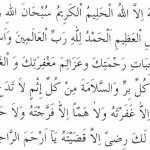 اِلاَّ اللّٰهُ الْحَلِيْمُ الْكَرِيْمُ سُبْحَانَ اللّٰهِ
الْعَظِيْمِ اَلْحَمْدُ لِلّٰهِ رَبِّ الْعَالَمِيْنَ
جِبَاتِ رَحْمَتِكَ وَعَزَائِمَ مَغْفِرَتِكَ
كُلِّ بِرٍّ وَالسَّلَامَةَ مِنْ كُلِّ اِثْمٍ لَا تَدَعْ
اِلاَّ غَفَرْتَهُ وَلَا هَمًّا اِلاَّ فَرَّجْتَهُ وَلَا
لَكَ رِضًى اِلاَّ قَضَيْتَهَا يَا اَرْحَمَ الرَّاحِ